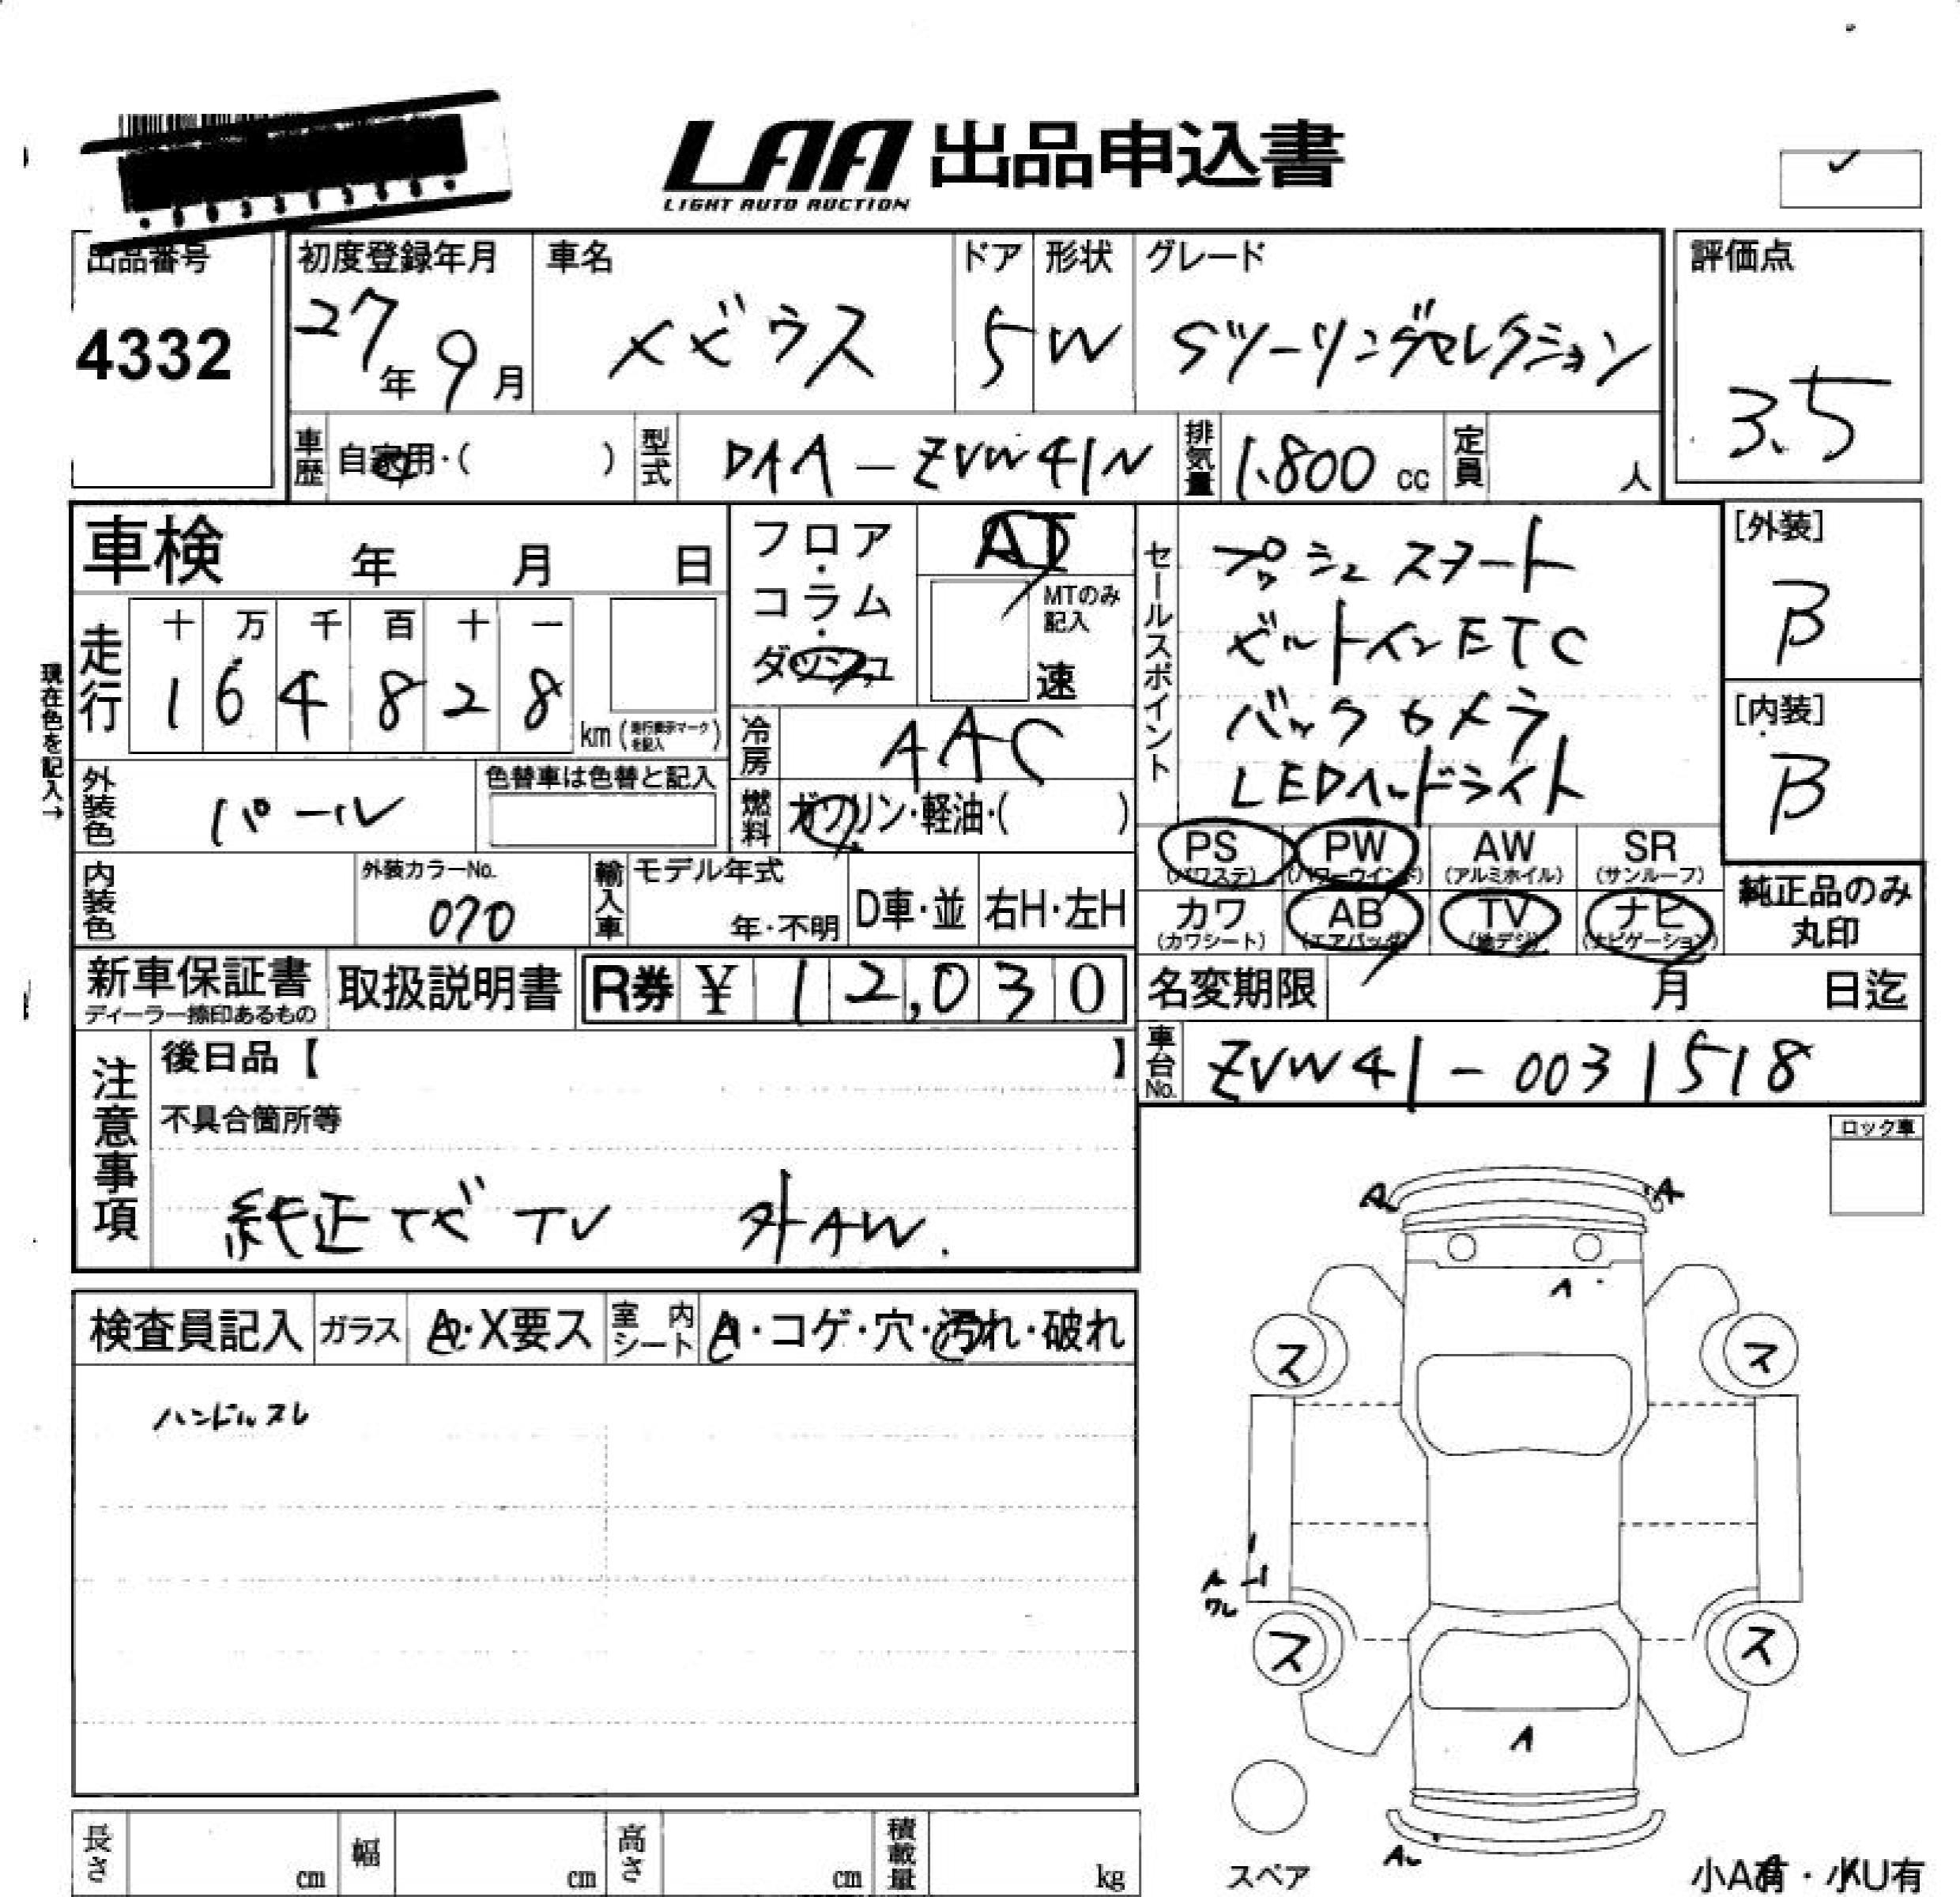 LAA 出品申込書
LIGHT AUTO AUCTION
✓
出品番号
4332
初度登録年月
27年 9月
車名
メビウス
ドア
5
形状
W
グレード
Sツーリングセレクション
評価点
3.5
車歴
自家用・( )
型式
DAA-ZVW41N
排気量
1.800 cc
定員
人
車検 年 月 日
フロア・コラム・ダッシュ
AT
MTのみ記入
速
セールスポイント
プッシュスタート
ビルトインETC
バックカメラ
LEDヘッドライト
[外装]
B
[内装]
B
現在色を記入→
走行
十 万 千 百 十 一
1 6 4 8 2 8
km (走行表示マークを記入)
冷房
AAC
外装色
パール
色替車は色替と記入
燃料
ガソリン・軽油・( )
PS (パワステ)
PW (パワーウインド)
AW (アルミホイル)
SR (サンルーフ)
カワ (カワシート)
AB (エアバッグ)
TV (地デジ)
ナビ (ナビゲーション)
純正品のみ丸印
内装色
外装カラーNo.
070
輸入車
モデル年式
年・不明
D車・並
右H・左H
新車保証書
ディーラー捺印あるもの
取扱説明書
R券 ¥ 12,030
名変期限 月 日迄
車台No.
ZVW41-0031518
注意事項
後日品【 】
不具合箇所等
純正ナビ TV 外AW.
ロック車
検査員記入
ガラス
A・X要ス
室内シート
A・コゲ・穴・汚れ・破れ
ハンドルスレ
A
A
A
ス
ス
A
ワレ
ス
ス
A
A
スペア
小A有・小U有
長さ cm
幅 cm
高さ cm
積載量 kg